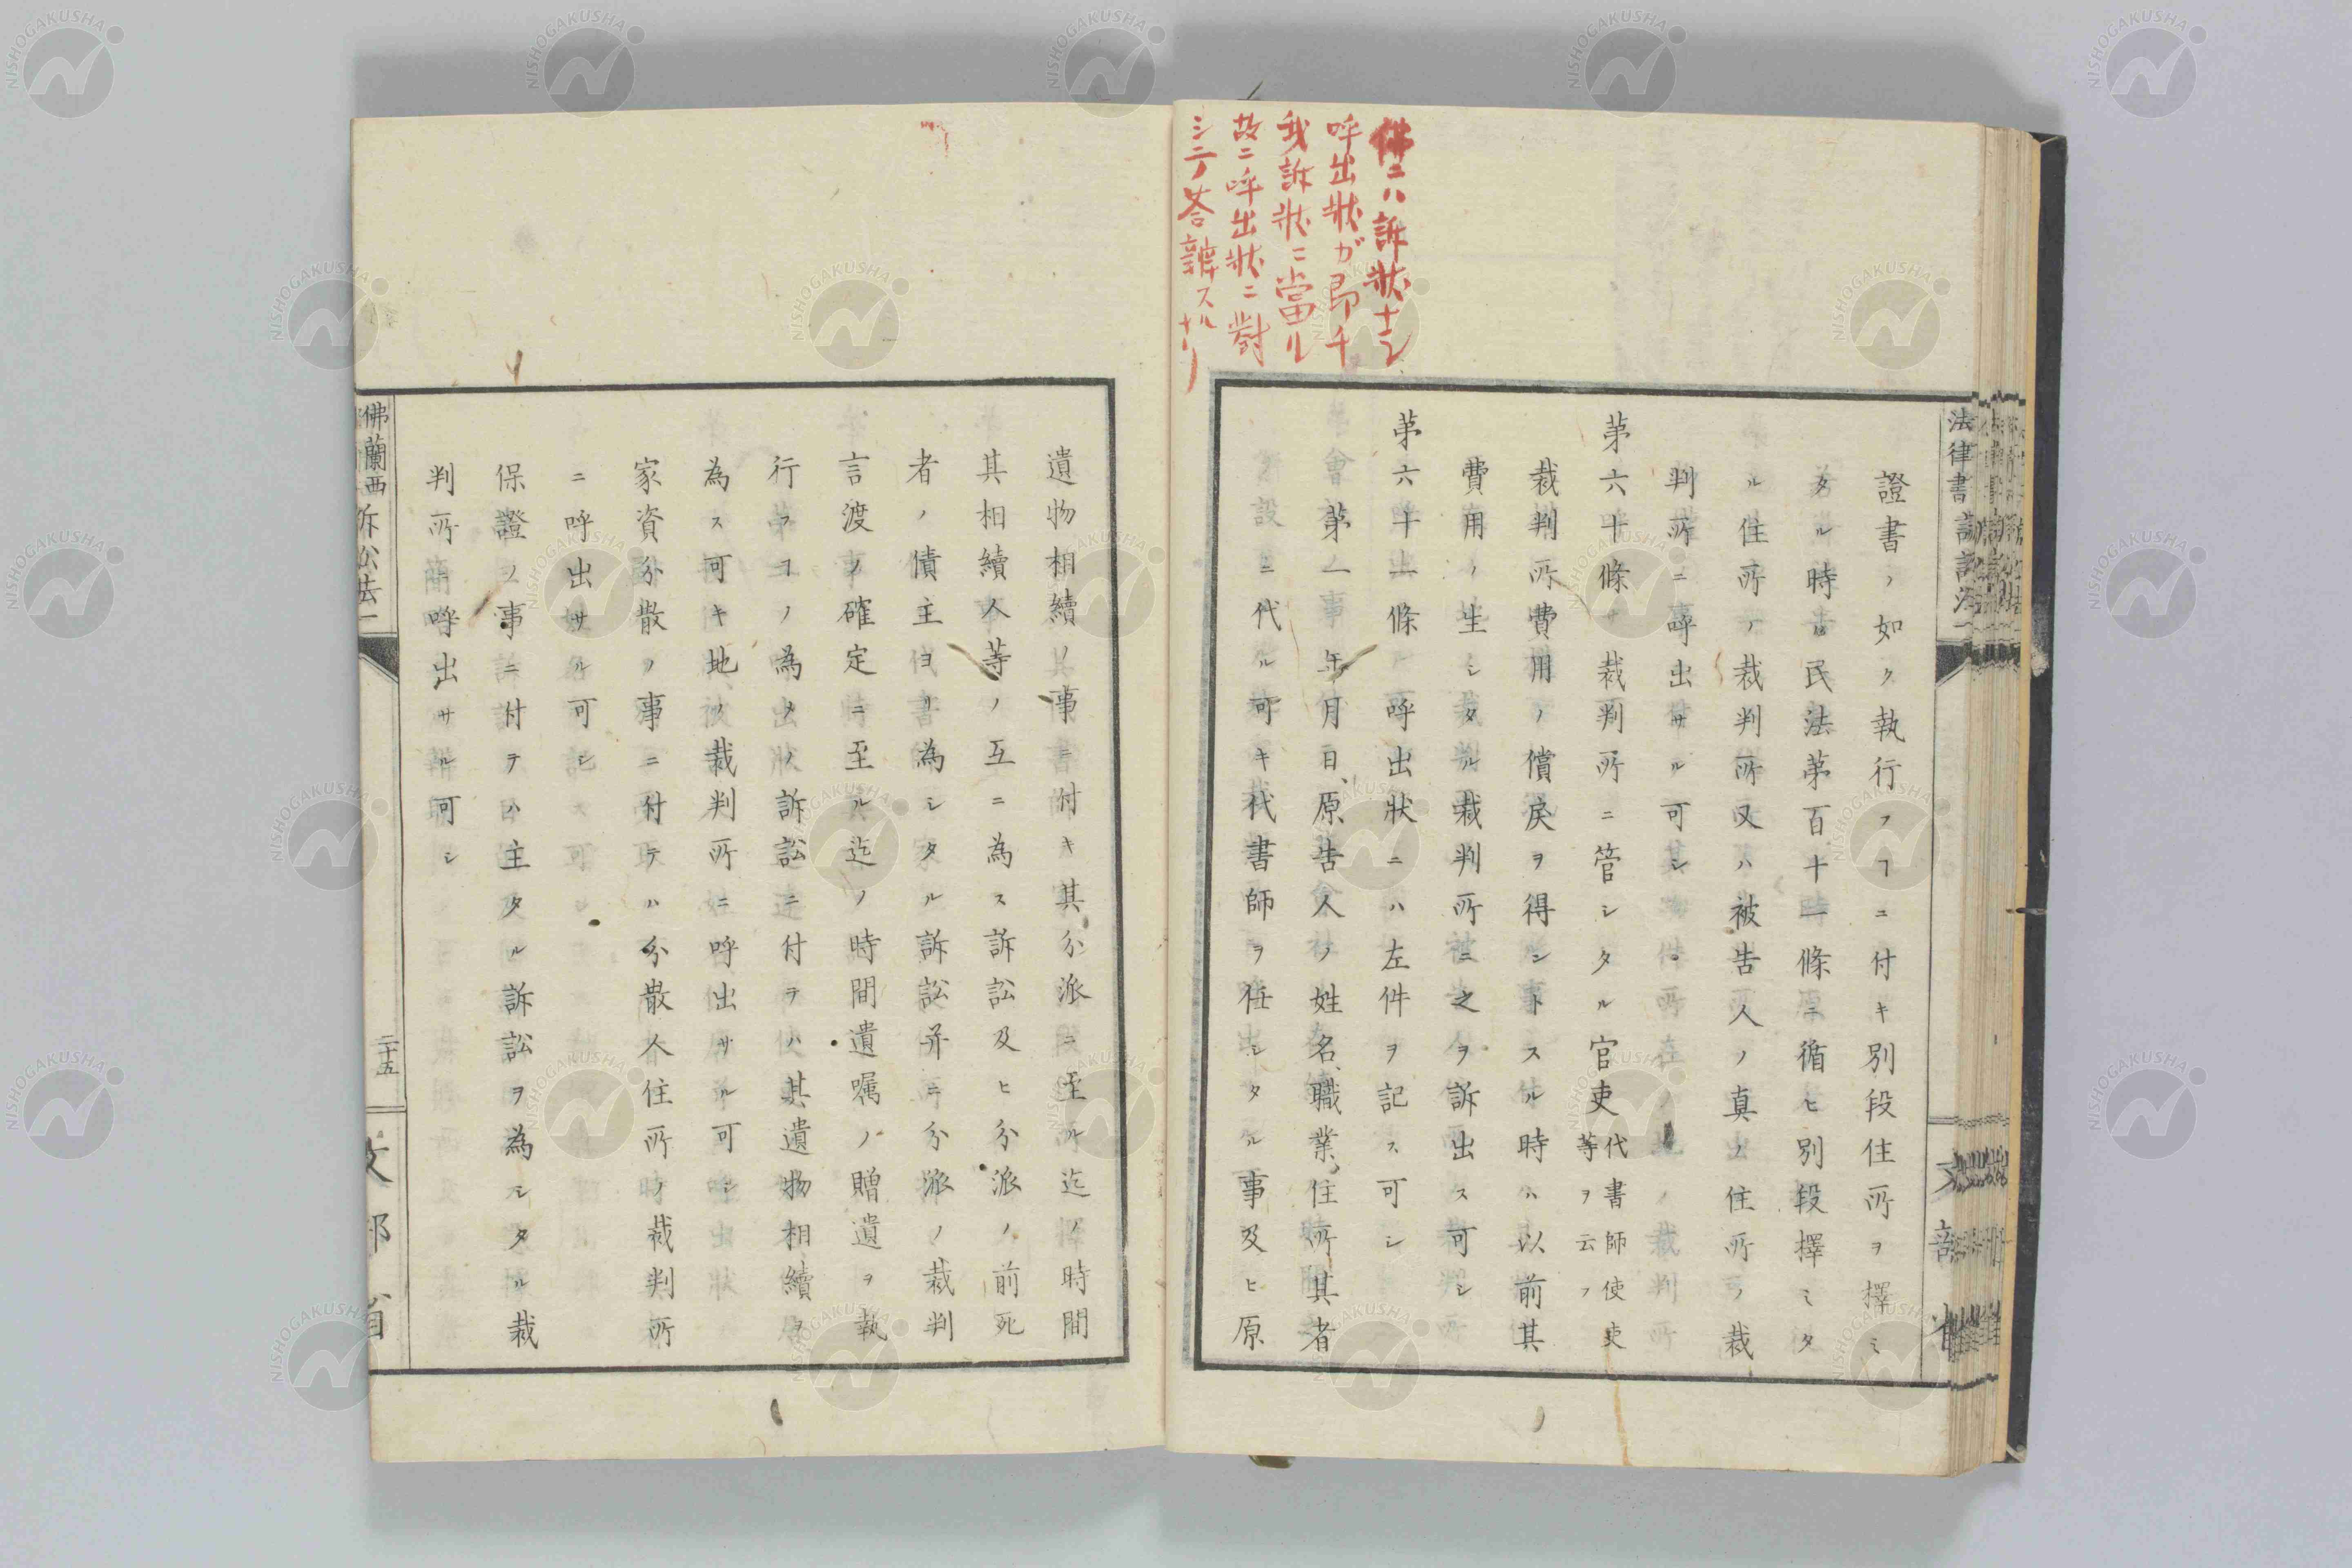 佛ニハ訴狀ナシ
呼出狀ガ即チ
我訴狀ニ當ル
故ニ呼出狀ニ對
シテ荅辨スル
ナリ
法律書
證書ノ如ク執行フヿニ付キ別段住所ヲ擇ミ
タル時ハ民法第百十一條ニ循ヒ別段擇ミタ
ル住所ノ裁判所又ハ被告人ノ真ノ住所ノ裁
判所ニ呼出サル可シ
第六十條 裁判所ニ管シタル官吏代書師使吏等ヲ云フ
裁判所費用ノ償戻ヲ得ントスル時ハ以前其
費用ノ生シタル裁判所ニ之ヲ訴出ス可シ
第六十一條 呼出狀ニハ左件ヲ記ス可シ
第一 年月日、原告人ノ姓名、職業、住所、其者
ニ代ル可キ代書師ヲ任シタル事及ヒ原
遺物相續ノ事ニ付キ其分派ニ至ル迄ノ時間
其相續人等ノ互ニ為ス訴訟及ヒ分派ノ前死
者ノ債主ヨリ為シタル訴訟并ニ分派ノ裁判
言渡ノ確定ニ至ル迄ノ時間遺囑ノ贈遺ヲ執
行フヿノ為メノ訴訟ニ付テハ其遺物相續ヲ
為ス可キ地ノ裁判所ニ呼出サル可シ
家資分散ノ事ニ付テハ分散人住所ノ裁判所
ニ呼出サル可シ
保證ノ事ニ付テハ主タル訴訟ヲ為シタル裁
判所ニ呼出サル可シ
佛蘭西訴訟法一
二十五
文部省
NISHOGAKUSHA